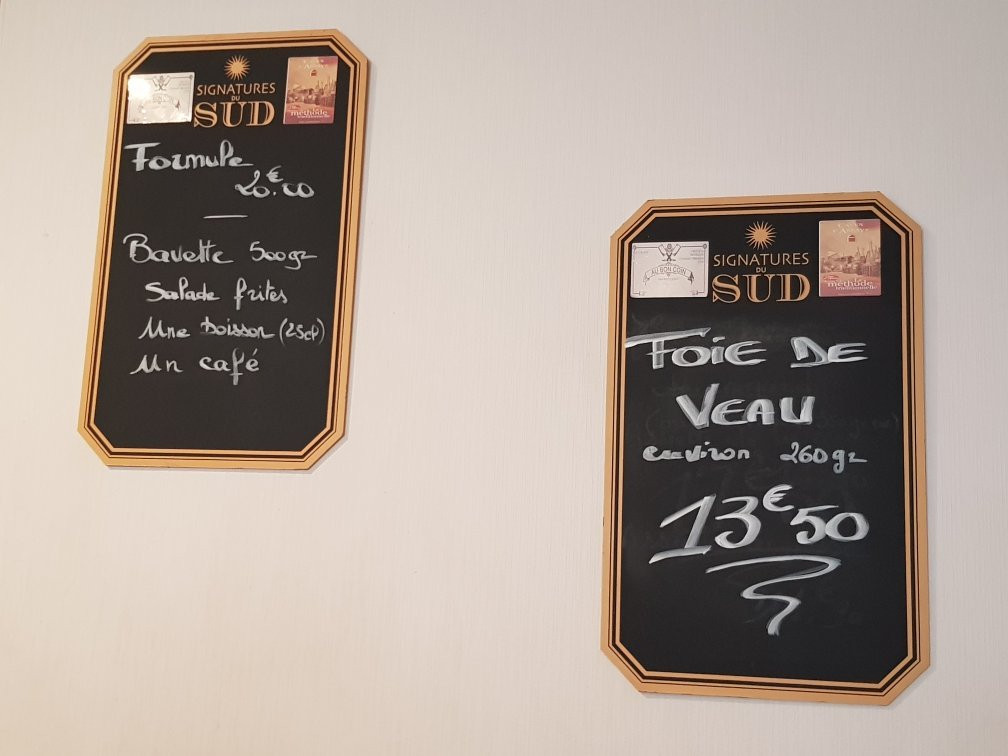 SIGNATURES
DU
SUD
méthode
Formule
20.€00
Bavette 500gr
Salade frites
Une boisson (25cl)
Un café
AU BON COIN
SIGNATURES
DU
SUD
méthode
traditionnelle
FOIE DE
VEAU
environ 260gr
13€50